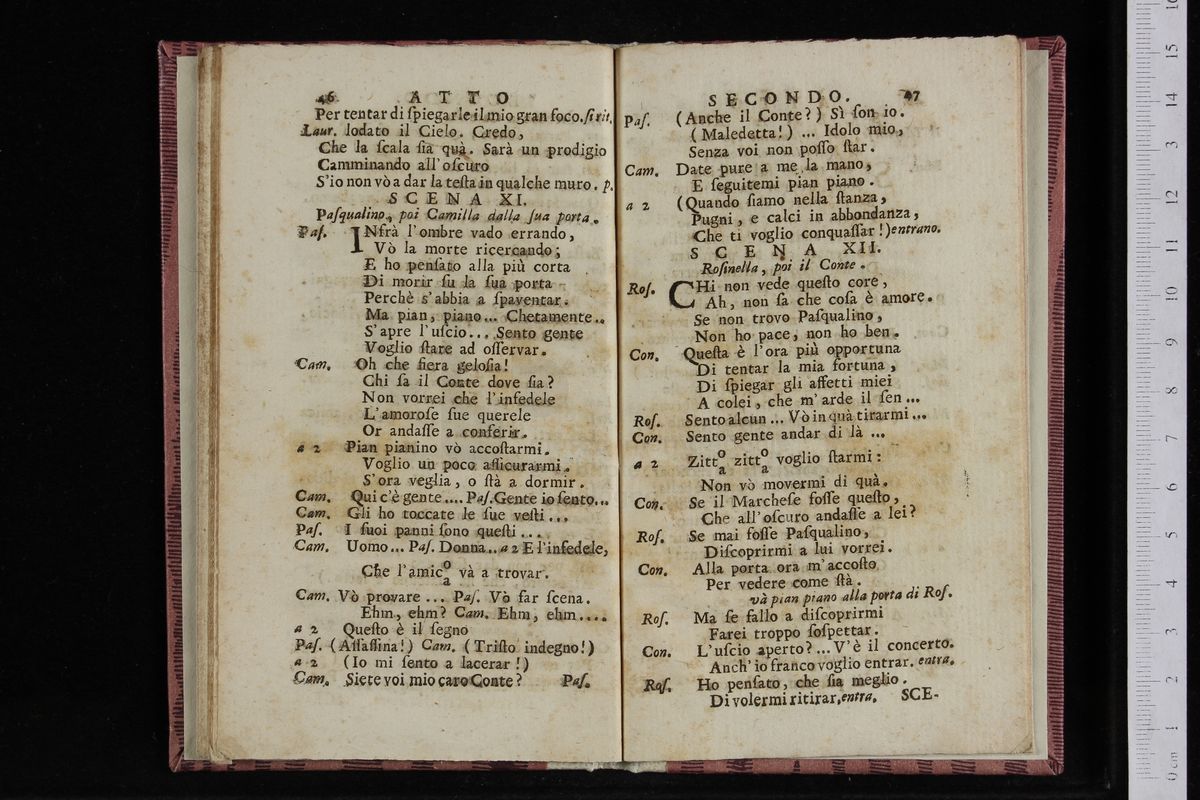 46 ATTO
Per tentar di ſpiegarle il mio gran foco. ſi rit.
Laur. lodato il Cielo. Credo,
Che la ſcala ſia quà. Sarà un prodigio
Camminando all'oſcuro
S'io non vò a dar la teſta in qualche muro. p.
SCENA XI.
Paſqualino, poi Camilla dalla ſua porta.
Paſ. INfrà l'ombre vado errando,
Vò la morte ricercando;
E ho penſato alla più corta
Di morir ſu la ſua porta
Perchè s'abbia a ſpaventar.
Ma pian, piano... Chetamente..
S'apre l'uſcio... Sento gente
Voglio ſtare ad oſſervar.
Cam. Oh che fiera geloſia!
Chi ſa il Conte dove ſia?
Non vorrei che l'infedele
L'amoroſe ſue querele
Or andaſſe a conferir.
a 2 Pian pianino vò accoſtarmi.
Voglio un poco aſſicurarmi.
S'ora veglia, o ſtà a dormir.
Cam. Qui c'è gente.... Paſ. Gente io ſento...
Cam. Gli ho toccate le ſue veſti...
Paſ. I ſuoi panni ſono queſti...
Cam. Uomo... Paſ. Donna.. a 2 E l'infedele,
Che l'amic o/a và a trovar.
Cam. Vò provare... Paſ. Vò far ſcena.
Ehm, ehm? Cam. Ehm, ehm....
a 2 Queſto è il ſegno
Paſ. (Aſſaſſina!) Cam. (Triſto indegno!)
a 2 (Io mi ſento a lacerar!)
Cam. Siete voi mio caro Conte? Paſ.
SECONDO. 47
Paſ. (Anche il Conte?) Sì ſon io.
(Maledetta!)... Idolo mio,
Senza voi non poſſo ſtar.
Cam. Date pure a me la mano,
E ſeguitemi pian piano.
a 2 (Quando ſiamo nella ſtanza,
Pugni, e calci in abbondanza,
Che ti voglio conquaſſar!) entrano.
SCENA XII.
Roſinella, poi il Conte.
Roſ. CHi non vede queſto core,
Ah, non ſa che coſa è amore.
Se non trovo Paſqualino,
Non ho pace, non ho ben.
Con. Queſta è l'ora più opportuna
Di tentar la mia fortuna,
Di ſpiegar gli affetti miei
A colei, che m'arde il ſen...
Roſ. Sento alcun... Vò in quà tirarmi...
Con. Sento gente andar di là...
a 2 Zitt o/a zitt o/a voglio ſtarmi:
Non vò movermi di quà.
Con. Se il Marcheſe foſſe queſto,
Che all'oſcuro andaſſe a lei?
Roſ. Se mai foſſe Paſqualino,
Diſcoprirmi a lui vorrei.
Con. Alla porta ora m'accoſto
Per vedere come ſtà.
và pian piano alla porta di Roſ.
Roſ. Ma ſe fallo a diſcoprirmi
Farei troppo ſoſpettar.
Con. L'uſcio aperto?... V'è il concerto.
Anch'io franco voglio entrar. entra.
Roſ. Ho penſato, che ſia meglio.
Di volermi ritirar, entra. SCE-
15
14
3
12
11
10
9
8
7
6
5
4
3
2
1
0 cm